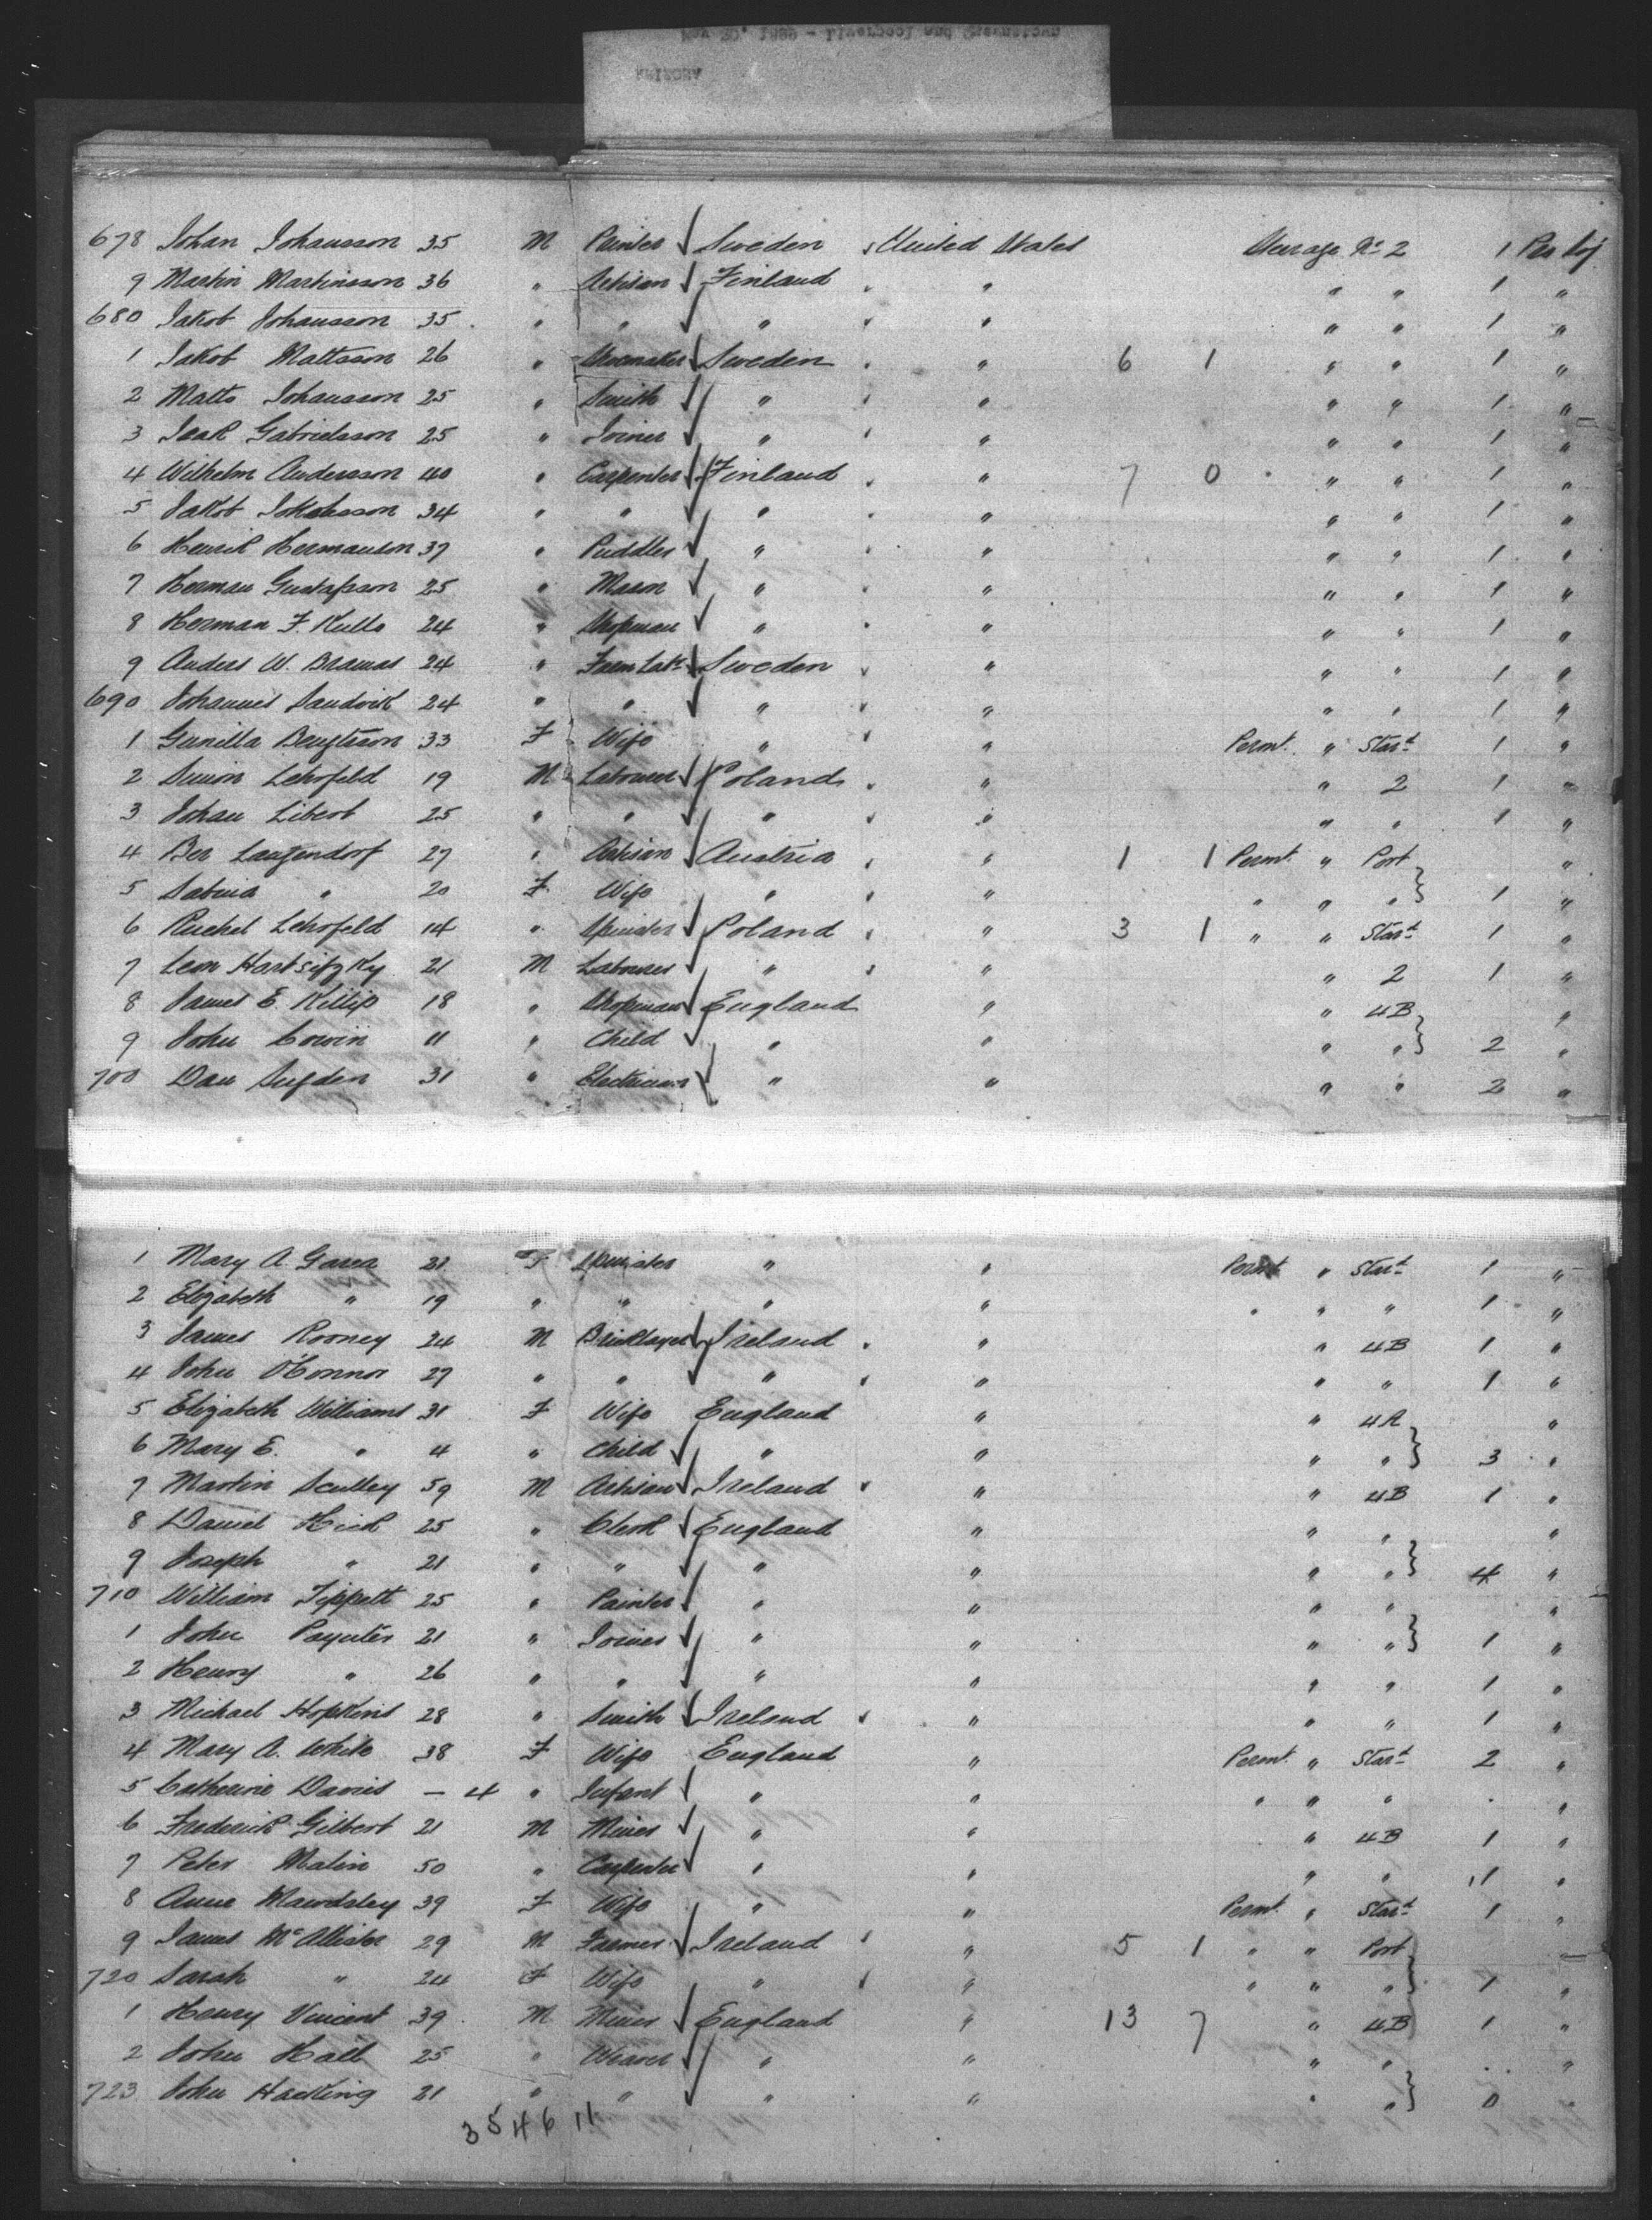 678 Johan Johansson 35 M Painter Sweden United States Steerage No 2 1 Per Voy
9 Martin Martinsson 36 " Artisan Finland " " " 1 "
680 Jakob Johansson 35 " " " " " " 1 "
1 Jakob Mattsson 26 " Shoemaker Sweden " 6 1 " " 1 "
2 Matts Johansson 25 " Smith " " " " 1 "
3 Isak Gabrielsson 25 " Joiner " " " " 1 "
4 Wilhelm Andersson 40 " Carpenter Finland " 7 0 " " 1 "
5 Jakob 34 " " " " " " 1 "
6 Henrik Hermanson 37 " Puddler " " " " 1 "
7 Herman Gustafsson 25 " Mason " " " " 1 "
8 Herman F. Kulls 24 " Shopman " " " " 1 "
9 Anders W. Bramas 24 " Farm Lab Sweden " " " 1 "
690 Johannes Sandvik 24 " " " " " " 1 "
1 Gunilla Bengtsson 33 F Wife " " Permt. " Star'd 1 "
2 Simon Lehrfeld 19 M Labourer Poland " " 2 1 "
3 Johan Libert 25 " " " " " " 1 "
4 Ber Langendorf 27 " Artisan Austria " 1 1 Permt. " Port "
5 " 20 F Wife " " " " " 1 "
6 Ruchel Lehrfeld 14 " Spinster Poland " 3 1 " " Star'd 1 "
7 Leon 21 M Labourer " " " 2 1 "
8 James E. Killip 18 " Shopman England " " 4B "
9 John Corvin 11 " Child " " " " 2 "
700 Dan Sugden 31 " Electrician " " " " 2 "
1 Mary A 21 F Spinster " " Permt " Star'd 1 "
2 Elizabeth " 19 " " " " " " " 1 "
3 James Rooney 24 M Bricklayer Ireland " " 4B 1 "
4 John O'Connor 27 " " " " " " 1 "
5 Elizabeth Williams 31 F Wife England " " 4A "
6 Mary E. " 4 " Child " " " " 3 "
7 Martin Sculley 59 M Artisan Ireland " " 4B 1 "
8 Daniel Hick 25 " Clerk England " " " "
9 Joseph " 21 " " " " " " 4 "
710 William Tippett 25 " Painter " " " " "
1 John Paynter 21 " Joiner " " " " 1 "
2 Henry " 26 " " " " " " 1 "
3 Michael Hopkins 28 " Smith Ireland " " " 1 "
4 Mary A. White 38 F Wife England " Permt. " Star'd 2 "
5 Catherine Davis - 4 " Infant " " " " " . "
6 Frederick Gilbert 21 M Miner " " " 4B 1 "
7 Peter Malin 50 " Carpenter " " " " 11 "
8 Anne Mawdsley 39 F Wife " " Permt. " Star'd 1 "
9 James McAllister 29 M Farmer Ireland " 5 1 " " Port
720 Sarah " 24 F Wife " " " " " 1 "
1 Henry Vincent 39 M Miner England " 13 7 " 4B 1 "
2 John Hall 25 " Weaver " " " " . "
723 John Hacking 21 " " " " " " 0 "
3 5 4 6 11